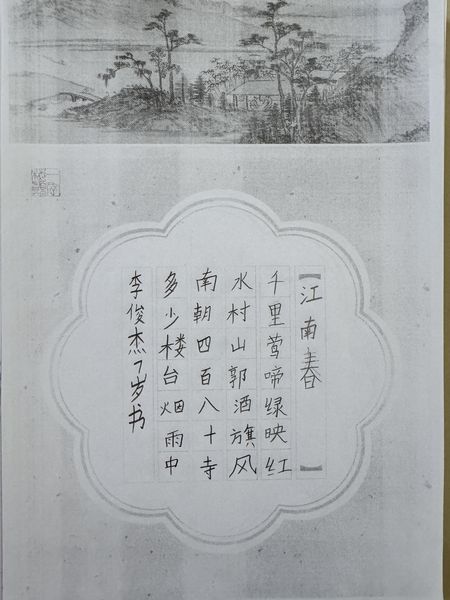 【江南春】
千里莺啼绿映红
水村山郭酒旗风
南朝四百八十寺
多少楼台烟雨中
李俊杰7岁书